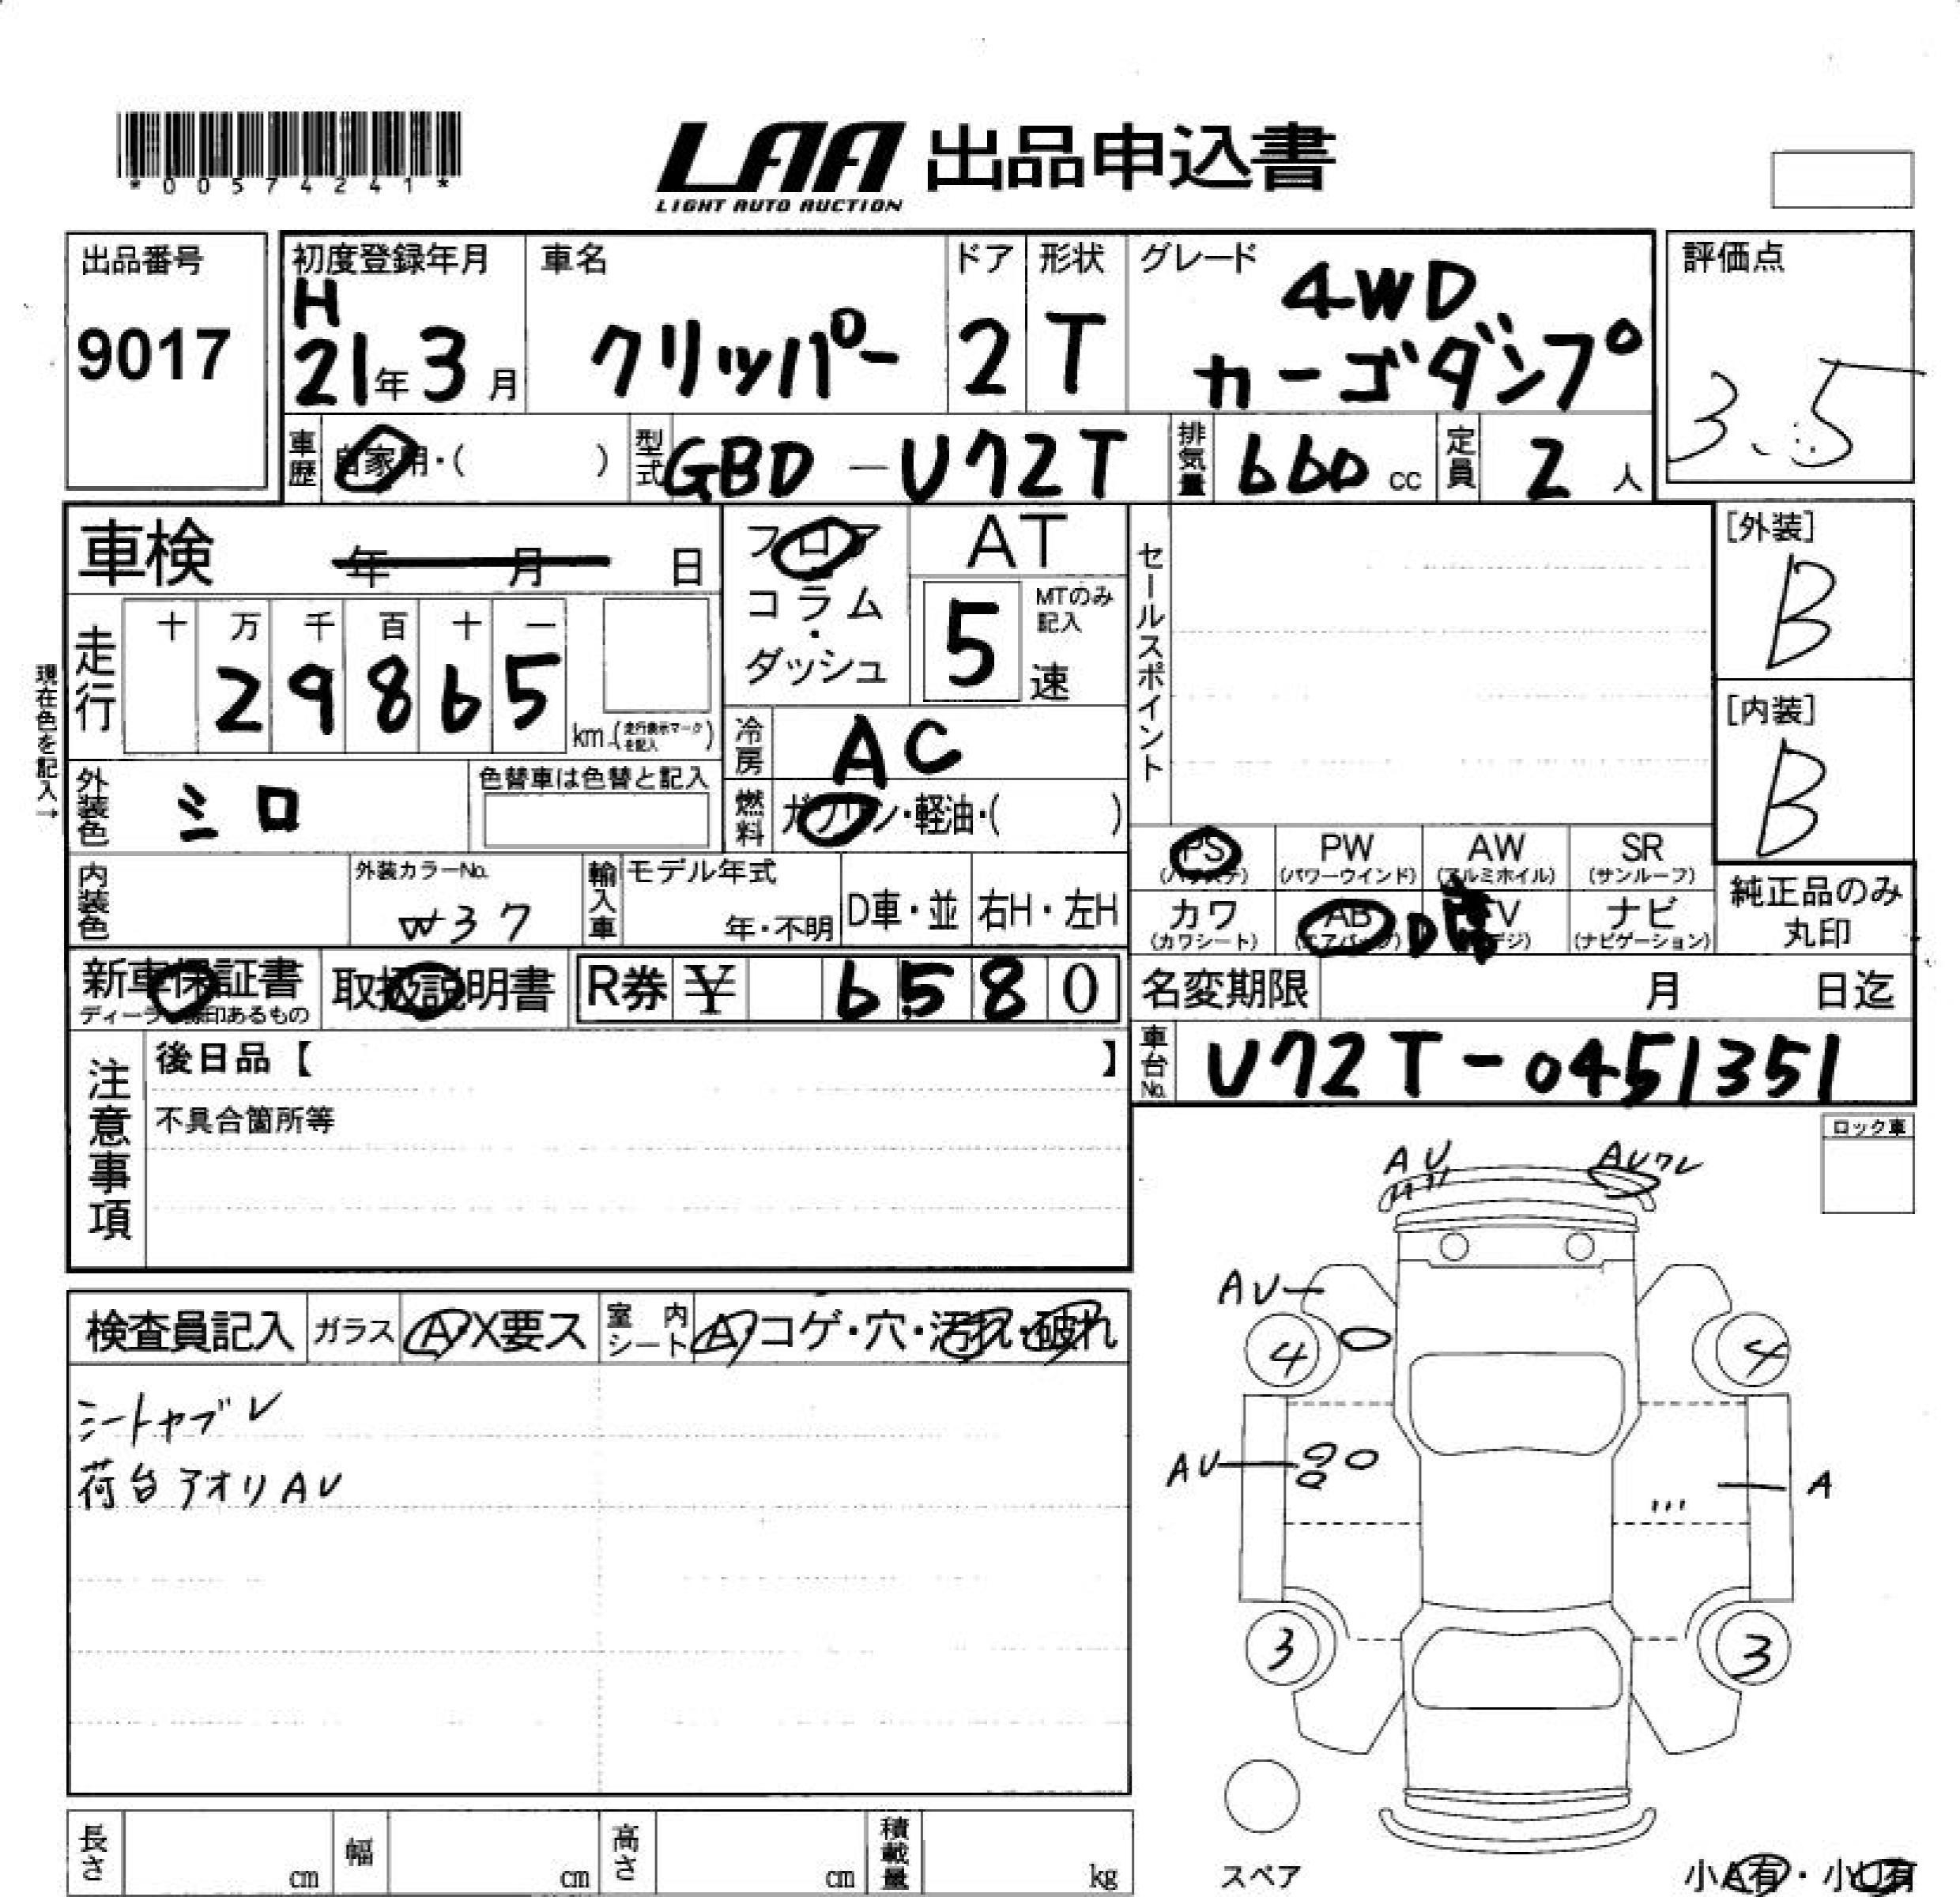 *00574241*
LAA 出品申込書
LIGHT AUTO AUCTION
出品番号
9017
初度登録年月
H
21年3月
車名
クリッパー
ドア
2
形状
T
グレード
4WD
カーゴダンプ
評価点
3.5
車歴
自家用・( )
型式
GBD-U72T
排気量
660 cc
定員
2 人
車検 年 月 日
フロア
コラム
・
ダッシュ
AT
5
MTのみ
記入
速
セールスポイント
[外装]
B
[内装]
B
現在色を記入→
走行
十 万 千 百 十 一
2 9 8 6 5
km (走行表示マークを記入)
冷房
AC
外装色
シロ
色替車は色替と記入
燃料
ガソリン・軽油・( )
PS
(パワステ)
PW
(パワーウインド)
AW
(アルミホイル)
SR
(サンルーフ)
内装色
外装カラーNo.
W37
輸入車
モデル年式
年・不明
D車・並
右H・左H
カワ
(カワシート)
AB
(エアバッグ)
D席
TV
ナビ
(ナビゲーション)
純正品のみ
丸印
新車保証書
取扱説明書
R券 ¥ 6580
名変期限 月 日迄
車台No.
U72T-0451351
注意事項
後日品【 】
不具合箇所等
ロック車
検査員記入
ガラス
A X要ス
室内
シート
A・コゲ・穴・汚れ・破れ
シートヤブレ
荷台アオリAU
AU
AUワレ
AU
4
4
AU
A
3
3
スペア
小A有・小U有
長さ cm
幅 cm
高さ cm
積載量 kg